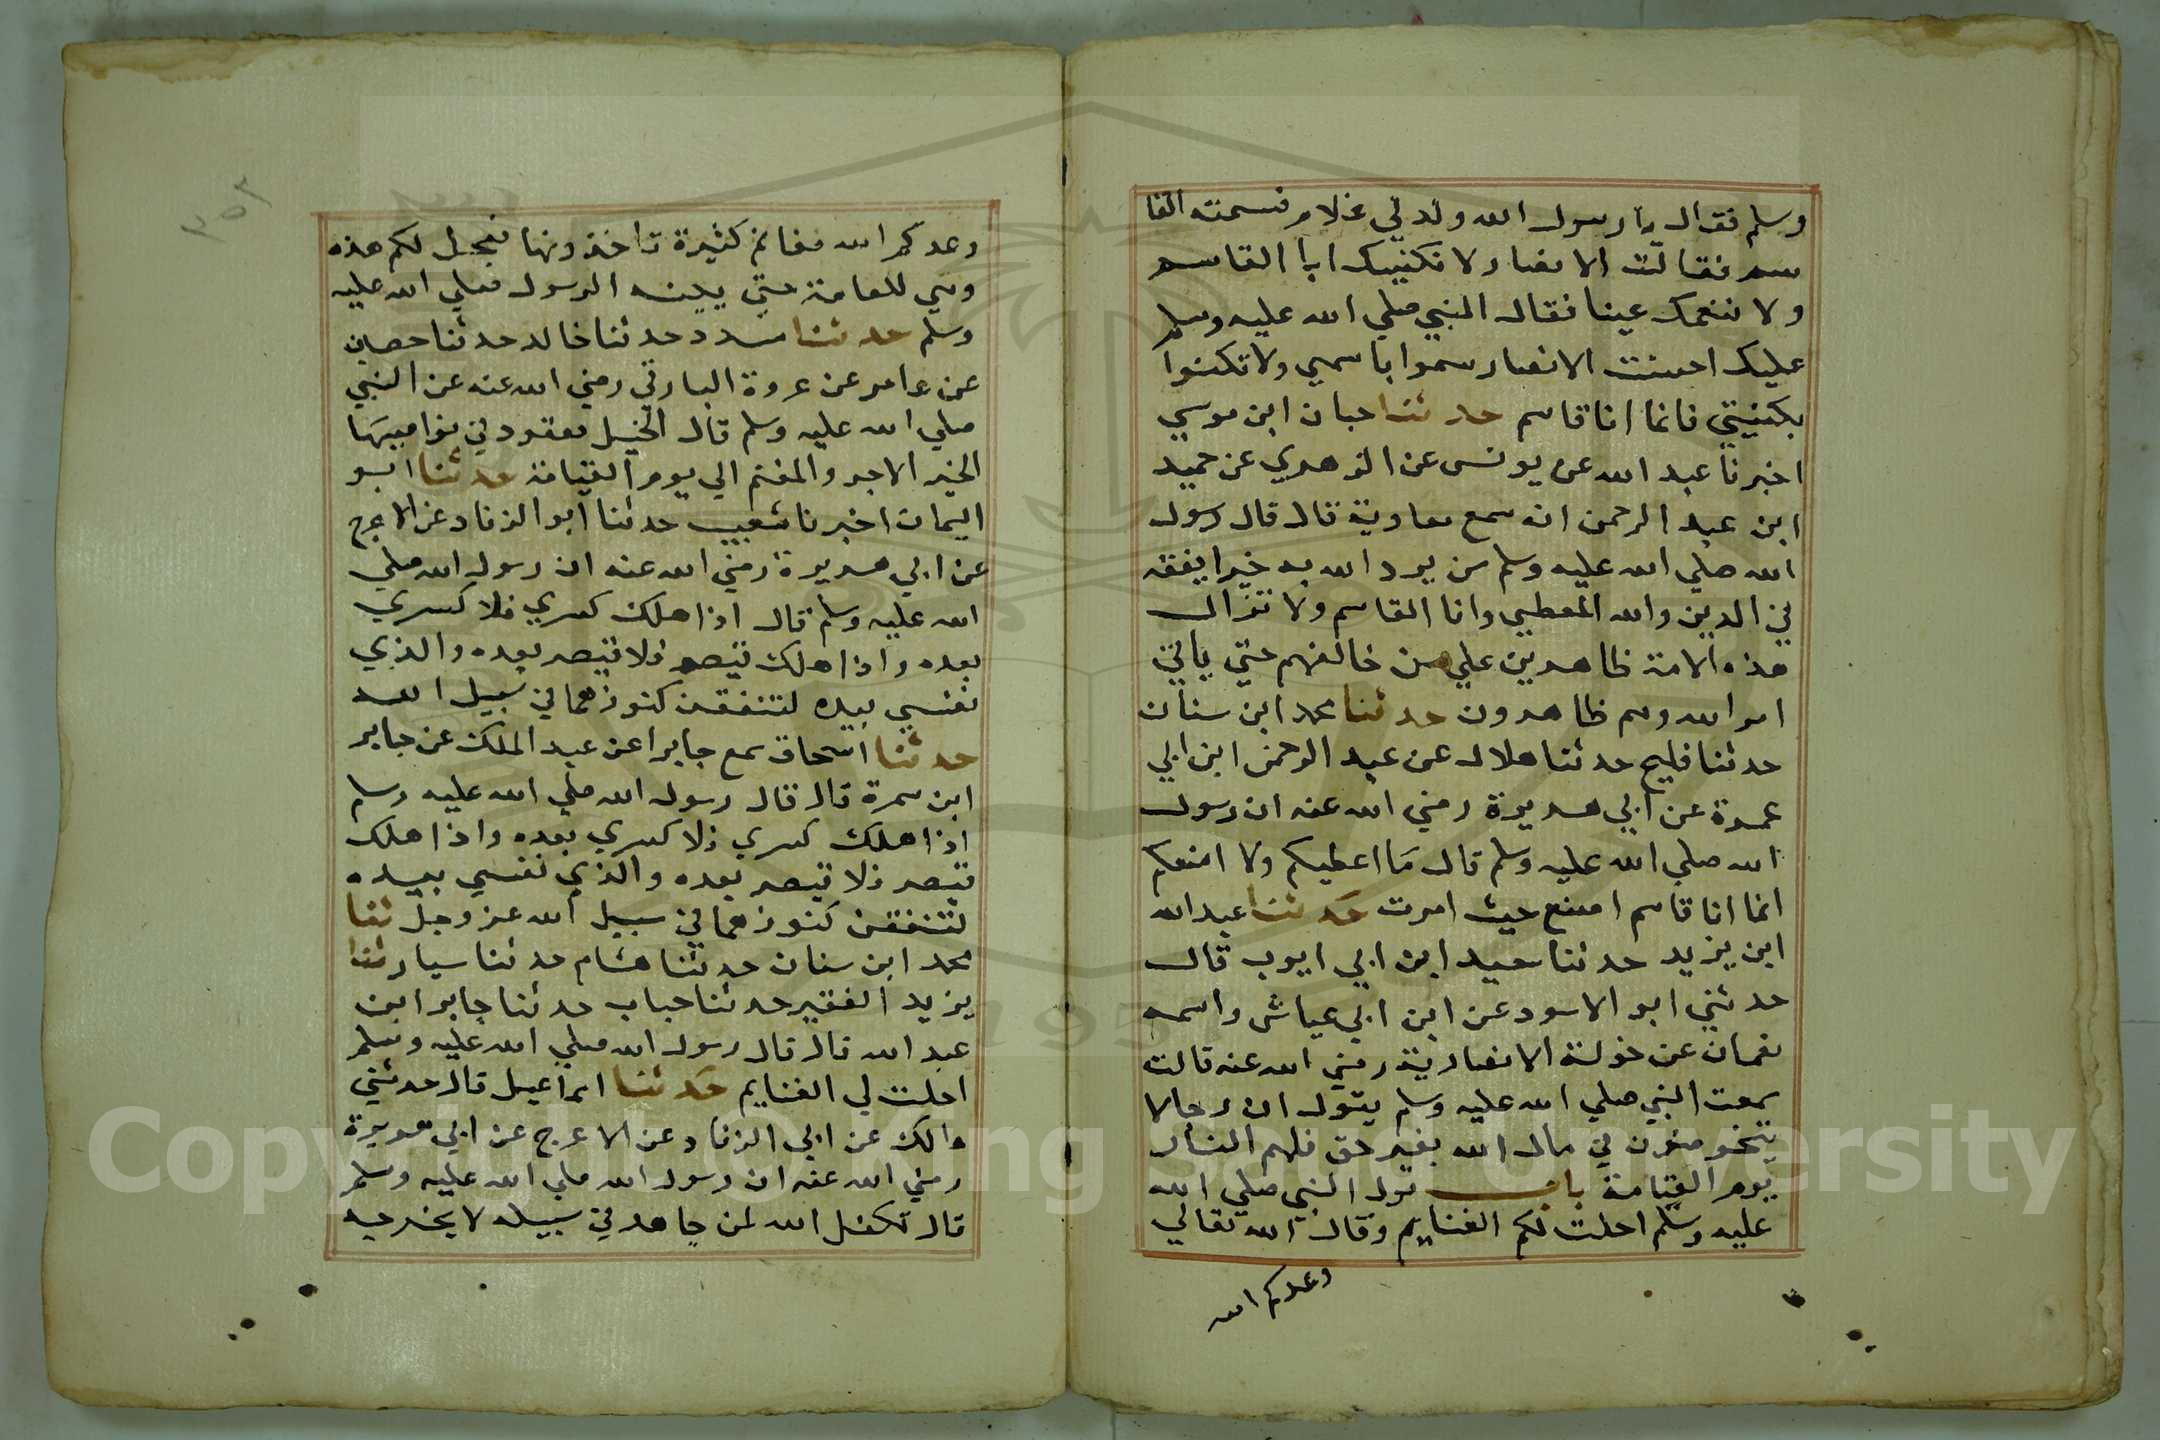 وسلم فقال يا رسول الله ولد لي غلام فسمته القا
سم فقالت الانصار لا نكنيك ابا القاسم
ولا ننعمك عينا فقال النبي صلي الله عليه وسلم
عليك احسنت الانصار سموا باسمي ولا تكنوا
بكنيتي فانما انا قاسم حدثنا حبان ابن موسي
اخبرنا عبد الله عن يونس عن الزهري عن حميد
ابن عبد الرحمن انه سمع معاوية قال قال رسول
الله صلي الله عليه وسلم من يرد الله به خيرا يفقه
في الدين والله المعطي وانا القاسم ولا تزال
هذه الامة ظاهرين علي من خالفهم حتي ياتي
امر الله وهم ظاهرون حدثنا محمد ابن سنان
حدثنا فليح حدثنا هلال عن عبد الرحمن ابن ابي
عمرة عن ابي هريرة رضي الله عنه ان رسول
الله صلي الله عليه وسلم قال ما اعطيكم ولا امنعكم
انما انا قاسم اضع حيث امرت حدثنا عبد الله
ابن يزيد حدثنا سعيد ابن ابي ايوب قال
حدثني ابو الاسود عن ابن ابي عياش واسمه
نعمان عن خولة الانصارية رضي الله عنه قالت
سمعت النبي صلي الله عليه وسلم يقول ان رجالا
يتخوضون في مال الله بغير حق فلهم النار
يوم القيامة باب قول النبي صلي الله
عليه وسلم احلت لكم الغنايم وقال الله تعالي
وعدكم الله
٣٥٢
وعدكم الله مغانم كثيرة تاخذونها فعجل لكم هذه
وهي للعامة حتي يبينه الرسول صلي الله عليه
وسلم حدثنا مسدد حدثنا خالد حدثنا حصين
عن عامر عن عروة البارقي رضي الله عنه عن النبي
صلي الله عليه وسلم قال الخيل معقود في نواصيها
الخير الاجر والمغنم الي يوم القيامة حدثنا ابو
اليمان اخبرنا شعيب حدثنا ابو الزناد عن الاعرج
عن ابي هريرة رضي الله عنه ان رسول الله صلي
الله عليه وسلم قال اذا هلك كسري فلا كسري
بعده واذا هلك قيصر فلا قيصر بعده والذي
نفسي بيده لتنفقن كنوزهما في سبيل الله
حدثنا اسحاق سمع جابرا عن عبد الملك عن جابر
ابن سمرة قال قال رسول الله صلي الله عليه وسلم
اذا هلك كسري فلا كسري بعده واذا هلك
قيصر فلا قيصر بعده والذي نفسي بيده
لتنفقن كنوزهما في سبيل الله عز وجل ثنا
محمد ابن سنان حدثنا هشام حدثنا سيار ثنا
يزيد الفقير حدثنا حباب حدثنا جابر ابن
عبد الله قال قال رسول الله صلي الله عليه وسلم
احلت لي الغنايم حدثنا اسماعيل قال حدثني
مالك عن ابي الزناد عن الاعرج عن ابي هريرة
رضي الله عنه ان رسول الله صلي الله عليه وسلم
قال تكفل الله لمن جاهد في سبيله لا يخرجه